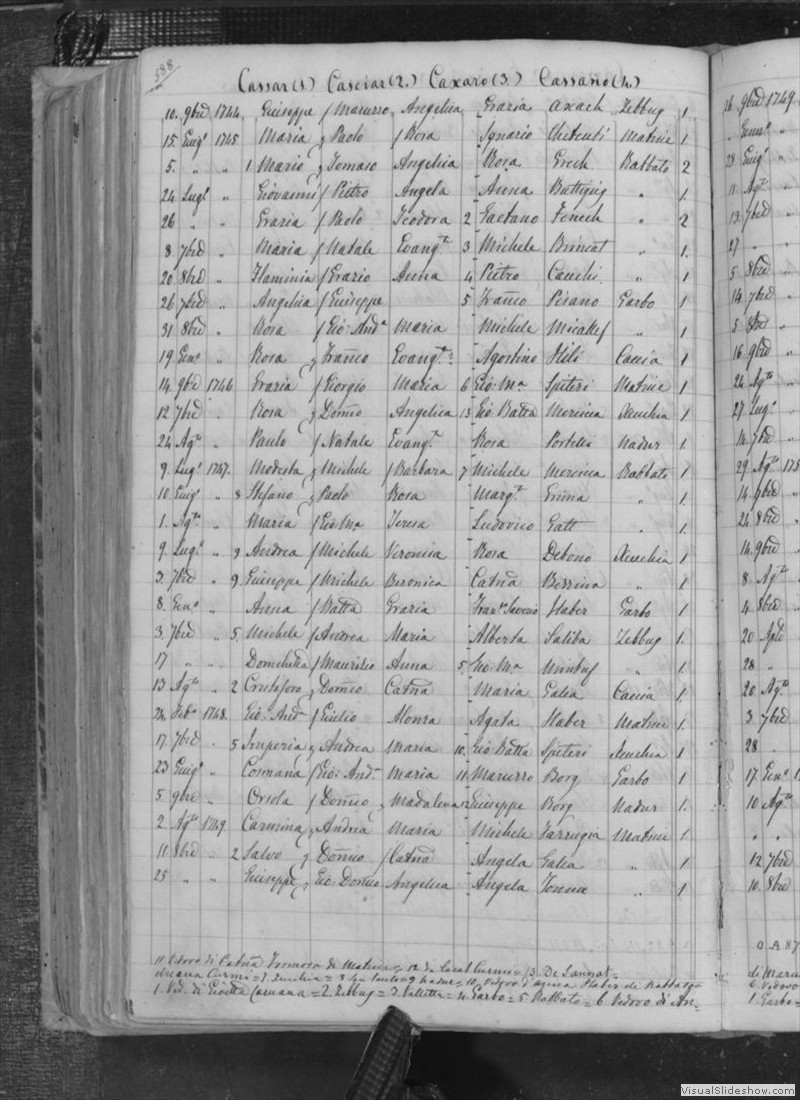 588
Cassar (1.) Casciar (2.) Caxaro (3.) Cassano (4.)
10. 9bre 1744 Giuseppe / Maruzzo Angelica Grazia Axach Zebbug 1.
15. Giug° 1745 Maria Paolo / Rosa Ignazio Matrice 1.
5. " " 1 Mario Tomaso Angelica Rosa Grech Rabbato 2
24 Lug° " Giovanni / Pietro Angela Anna Buttigig " 1.
26 " Grazia / Paolo Teodora 2 Gaetano Fenech " 2
8 7bre " Maria / Natale Evang.ta 3 Michele Brincat " 1.
20 8bre " Flaminia / Grazio Anna 4 Pietro Cauchi " 1
26 7bre " Angelica / Giuseppe 5 Franco Pisano Garbo 1
31 8bre " Rosa / Gio: And.a Maria Michele Micallef " 1
19 Gen° " Rosa Franco Evang.ta Agostino Hili Caccia 1
14 9bre 1746 Grazia / Giorgio Maria 6 Gio Ma Spiteri Matrice 1
12 7bre " Rosa Domco Angelica 13 Gio Batta Mercieca Xeuchia 1
24 Ag.to " Paulo / Natale Evang.ta Rosa Portelli Nadur 1.
9. Lug° 1747. Modesta Michele / Barbara 7 Michele Mercieca Rabbato 1
10. Giug° " 8 Stefano Paolo Rosa Marg.ta Grima " 1
1. Ag.to " Maria / Gio Ma Teresa Ludovico Gatt " 1
9. Lug° " 9 Andrea / Michele Veronica Rosa Debono Xeuchia 1.
3. 7bre " 9. Giuseppe / Michele Beronica Catna " 1
8. Gen° " Anna / Batta Grazia Fran.co Saverio Haber Garbo 1.
3. 7bre " 5. Michele / Andrea Maria Alberta Saliba Zebbug 1.
17 " " Domenica / Maurizio Anna 5. Gio Ma Mintuf " 1.
13 Ag.to " 2 Cristoforo Domco Catna Maria Galea Caccia 1
24 1748. Gio: And.a / Giulio Alonza Agata Haber Matrice 1.
17. 7bre " 5 Imperia Andrea Maria 10. Gio Batta Spiteri Xeuchia 1
23 Giug° " Cosmana / Gio: And.a Maria 11. Maruzzo Borg Garbo 1
5 9bre " Orsola / Domco Madalena 12 Giuseppe Borg Nadur 1.
2. Ag.to 1749 Carmina Andrea Maria Michele Farrugia Matrice 1.
11 8bre " 2 Salvo Domco / Catna Angela Galea " 1
25 " " Giuseppe Gio Domco Angelica Angela " 1
11 Vedovo di Catna Formosa di Matrice = 12 da Casal Curmi = 13. De Sannat =
Curmi = 7. Xeuchia = 8. = 9 Nadur = 10. Vedovo d'Agnesa Haber di Rabbato =
1. Ved. di Caruana = 2. Zebbug = 3. Valletta = 4. Garbo = 5. Rabbato = 6. Vedovo di An=
26 9bre 1749
" Genn° "
28 Giug° "
11 Ag.to "
13 7bre "
27 "
5 8bre "
14 7bre "
5 8bre "
16 9bre "
24 Ag.to "
27 Lug° "
14 7bre "
29 Ag.to 175
14 9bre "
24 8bre "
14. 9bre "
8. Ag.to "
4 8bre "
20 Aple "
28 "
20 Ag.to "
3. 7bre "
28 "
17 Gen°
10 Ag.to
" "
12 7bre
10. 8bre
0 A 87
di Maru
6. Vedovo
1. Garbo =
VisualSlideshow.com